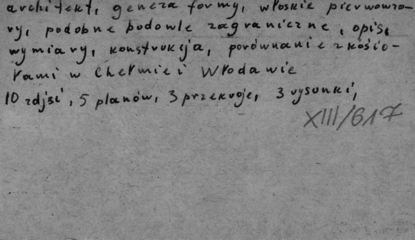 architekt, geneza formy, włoskie pierwowzo-
ry, podobne budowle zagraniczne, opis,
wymiary, konstrukcja, porównanie z kościo-
łami w Chełmie i Włodawie
10 zdjęć, 5 planów, 3 przekroje, 3 rysunki,
XIII/617